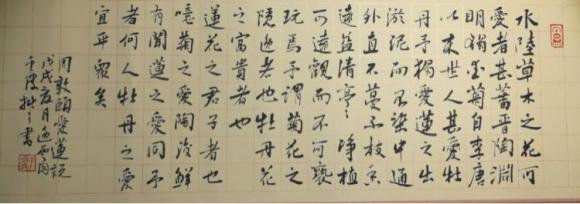 水陸草木之花可
愛者甚蕃晋陶淵
明獨愛菊自李唐
以来世人甚愛牡
丹予獨愛蓮之出
淤泥而不染中通
外直不蔓不枝香
遠益清亭〻净植
可遠觀而不可褻
玩焉予謂菊花之
隐逸者也牡丹花
之富貴者也
蓮花之君子者也
噫菊之愛陶後鮮
有聞蓮之愛同予
者何人牡丹之愛
宜乎眾矣
周敦頤愛蓮説
戊戌夏月
書